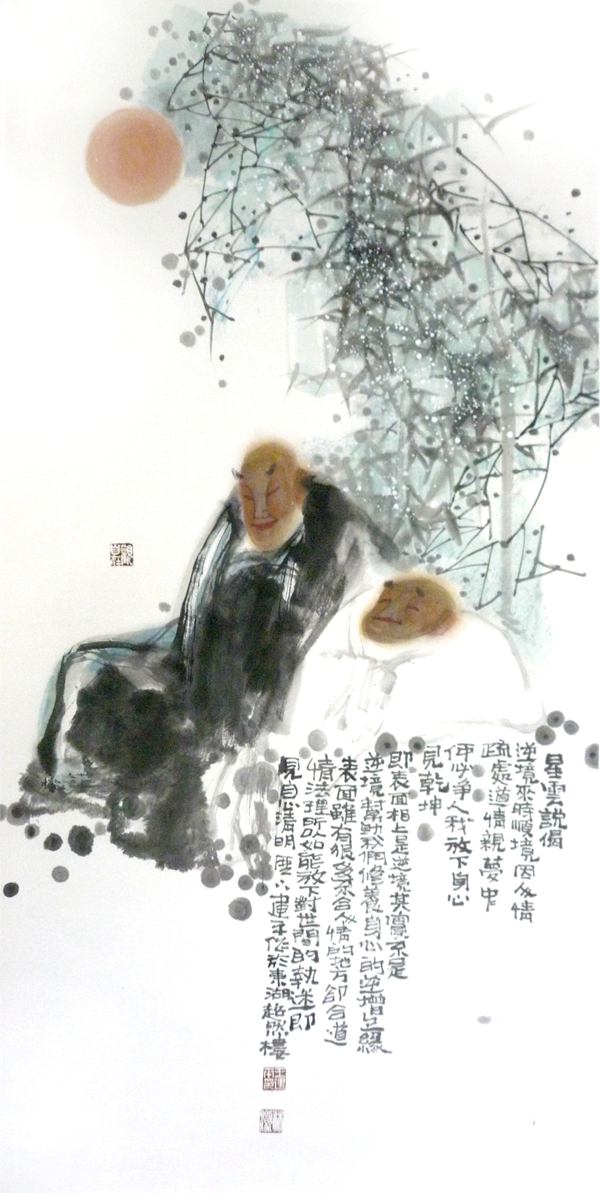 星雲說偈
逆境來時順境因人情
疏處道情親夢中
何必爭人我放下身心
見乾坤
即表面相上是逆境其實不是
逆境幫助我們修養身心的逆增上緣
表面雖有很多不合人情的地方卻合道
情法理所以如能放下對世間的執迷即
見自心清明 作於東湖超然樓